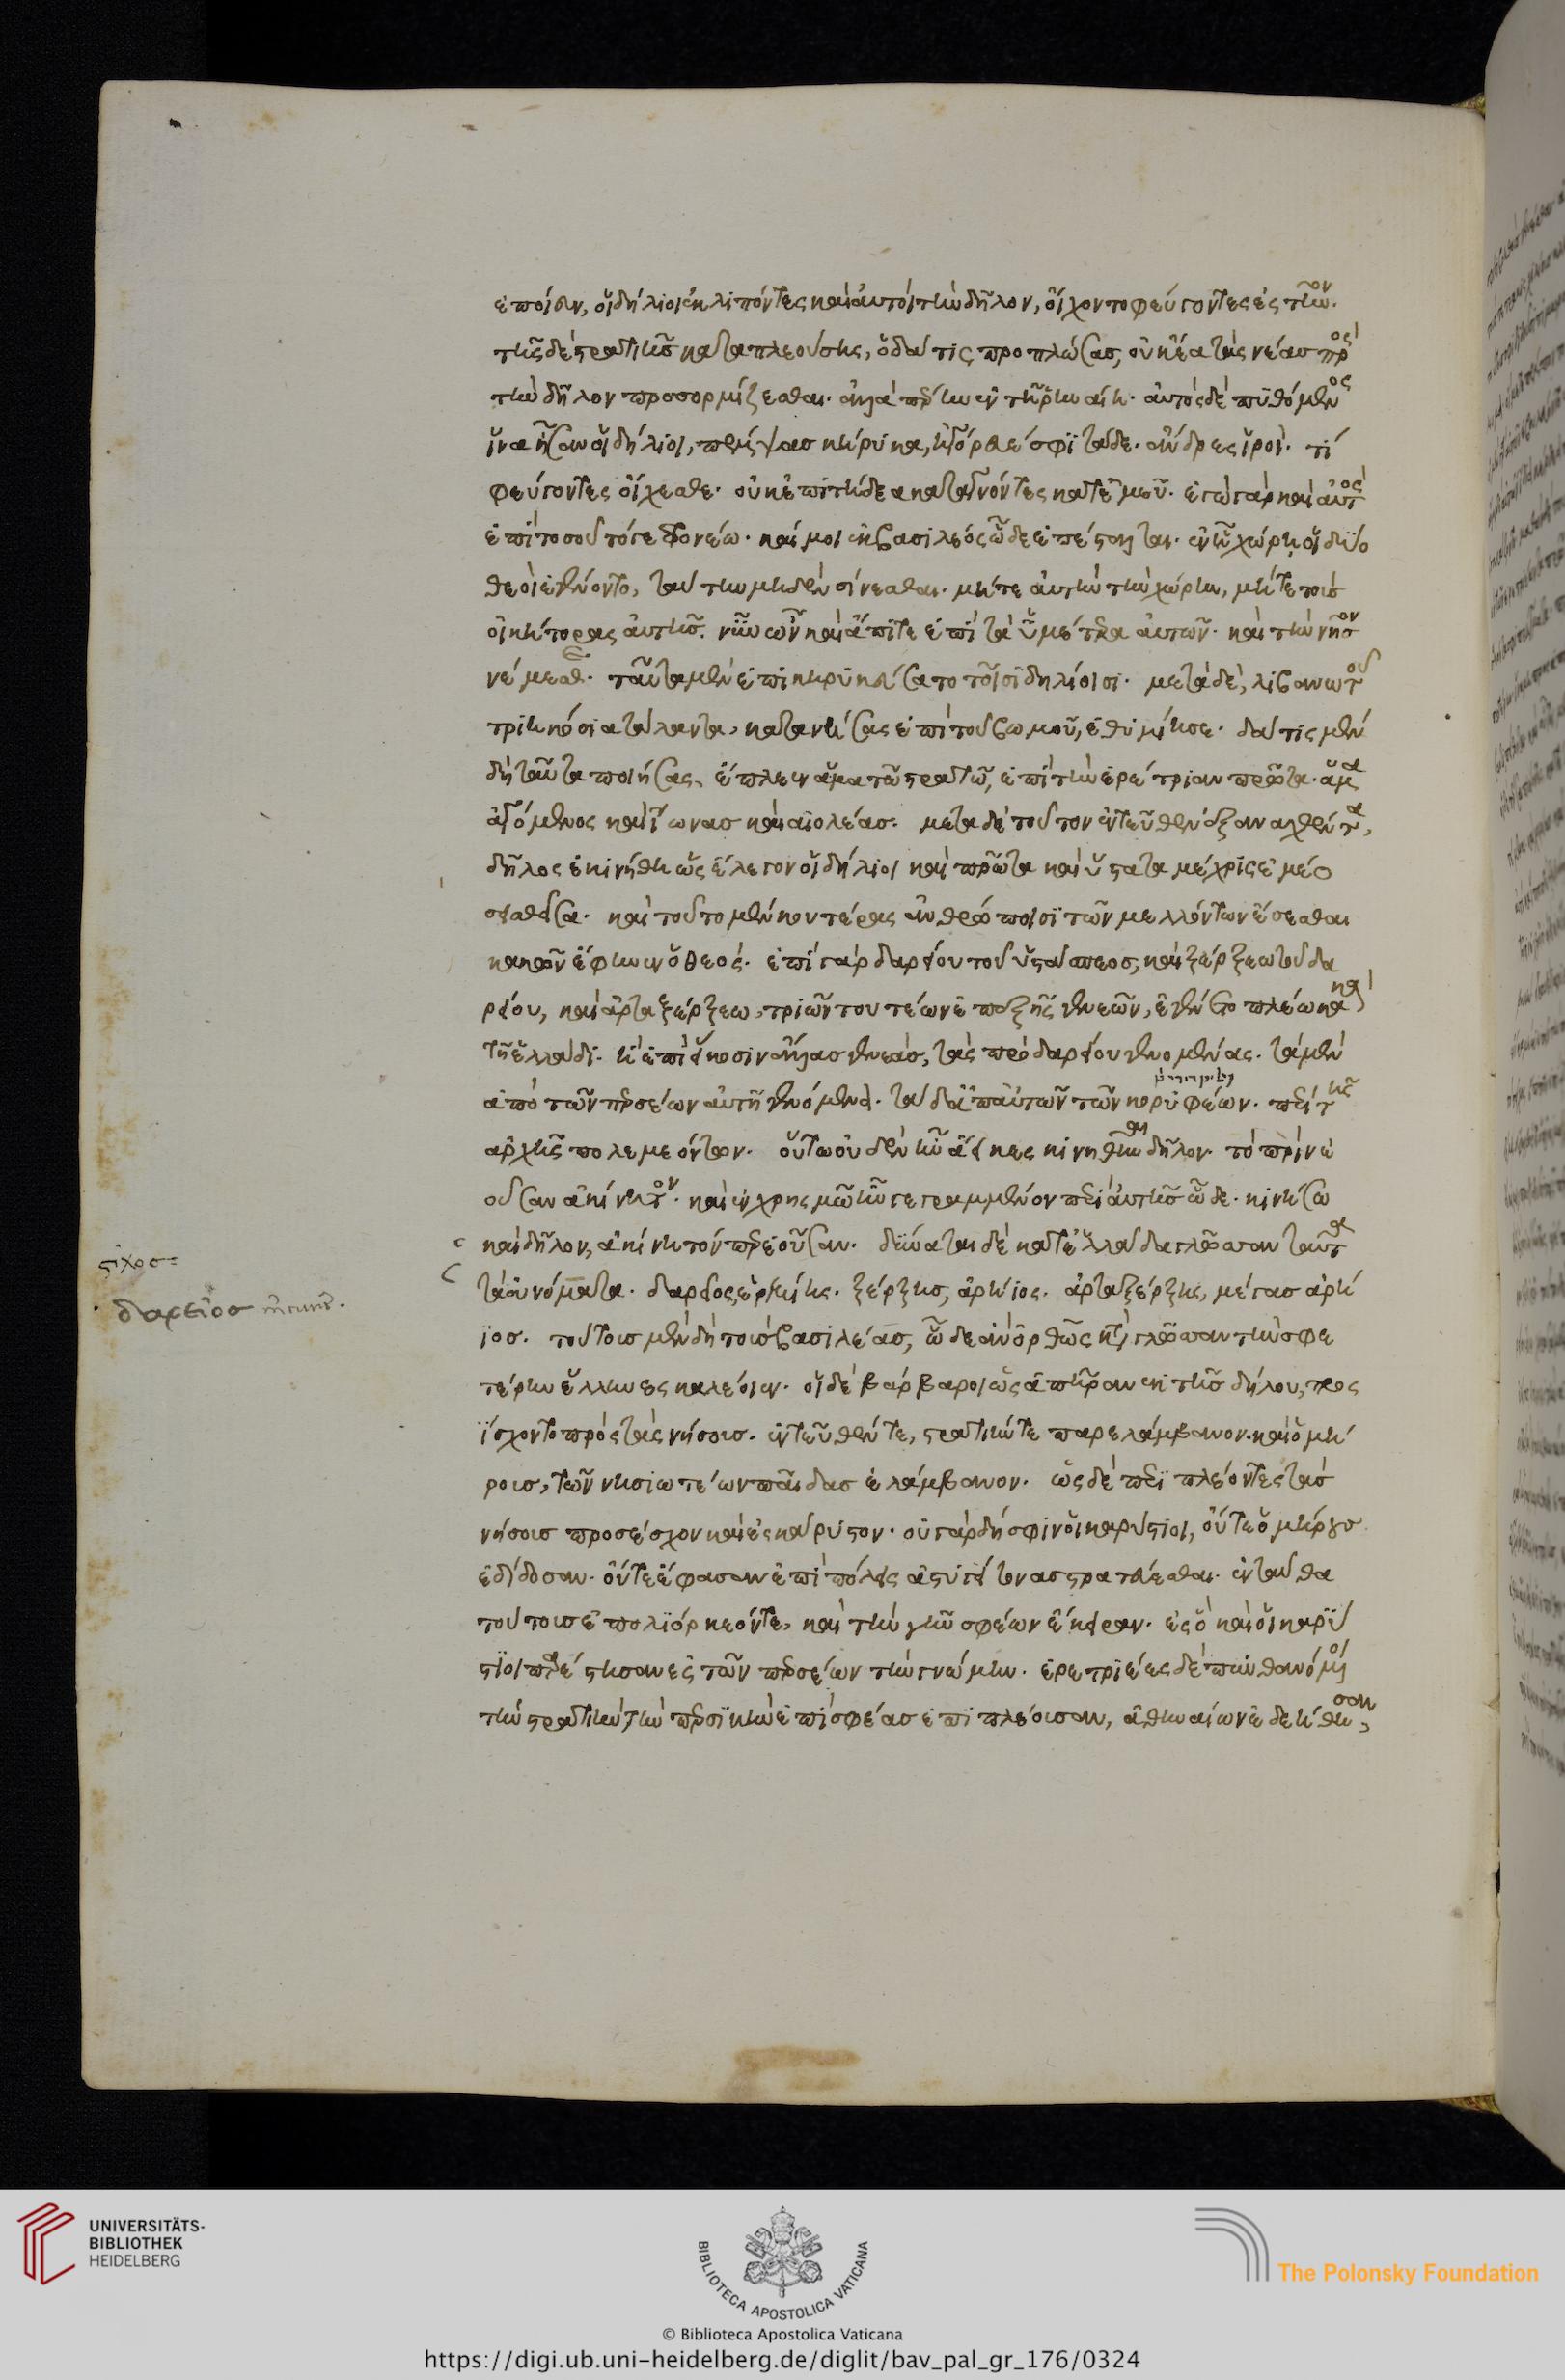 ἐποίευν, οἱ δήλιοι ἐκλιπόντες καὶ αὐτοὶ τὴν δῆλον, οἴχοντο φεύγοντες ἐς τῆνον.
τῆς δὲ στρατιῆς καταπλεούσης, ὁ δάτις προπλώσας, οὐκ ἔα τὰς νέας πρὸς
τὴν δῆλον προσορμίζεσθαι. ἀλλὰ πέρην ἐν τῇ ῥηναίη. αὐτὸς δὲ πυθόμενος
ἵνα ἦσαν οἱ δήλιοι, πέμψας κήρυκα, ἠγόρευέ σφι τάδε. ἄνδρες ἱροὶ. τί
φεύγοντες οἴχεσθε. οὐκ ἐπιτήδεα καταγνόντες κατ' ἐμεῦ. ἐγὼ γὰρ καὶ αὐτὸς
ἐπὶ τοσοῦτό γε φρονέω. καί μοι ἐκ βασιλέος ὧδε ἐπέσταλται. ἐν τῇ χώρῃ οἱ δύο
θεοὶ ἐγένοντο, ταύτην μηδὲν σίνεσθαι. μήτε αὐτὴν τὴν χώρην, μήτε τοὺς
οἰκήτορας αὐτῆς. νῦν ὦν καὶ ἄπιτε ἐπὶ τὰ ὑμέτερα αὐτῶν. καὶ τὴν νῆσον
νέμεσθε. ταῦτα μὲν ἐπικηρυκεύσατο τοῖσι δηλίοισι. μετὰ δὲ, λιβανωτοῦ
τριηκόσια τάλαντα, κατανήσας ἐπὶ τοῦ βωμοῦ, ἐθυμίησε. δάτις μὲν
δὴ ταῦτα ποιήσας, ἔπλεεν ἅμα τῶ στρατῶ, ἐπὶ τὴν ἐρέτριαν πρῶτα. ἅμα
ἀγόμενος καὶ ἴωνας καὶ αἰολέας. μετὰ δὲ τοῦτον ἐντεῦθεν ἐξαναχθέντα,
δῆλος ἐκινήθη ὡς ἔλεγον οἱ δήλιοι καὶ πρῶτα καὶ ὕστατα μέχρις ἐμέο
σεισθεῖσα. καὶ τοῦτο μέν κου τέρας ἀνθρώποισι τῶν μελλόντων ἔσεσθαι
κακῶν ἔφηνεν ὁ θεός. ἐπὶ γὰρ δαρείου τοῦ ὑστάσπεος, καὶ ξέρξεω τοῦ δα
ρείου, καὶ ἀρταξέρξεω, τριῶν τουτέων ἐπεξῆς γενεῶν, ἐγένετο πλέω κακὰ
τῇ ἑλλάδι. ἢ ἐπὶ εἴκοσιν ἄλλας γενεὰς, τὰς πρὸ δαρείου γενομένας. τὰ μὲν
ἀπὸ τῶν περσέων αὐτῇ γενόμενα. τὰ δὲ ἀπ' αὐτῶν τῶν κορυφέων. περὶ τῆς
ἀρχῆς πολεμεόντων. οὕτω οὐδὲν ἦν ἀεικὲς κινηθῆναι δῆλον. τὸ πρὶν ἐ
οῦσαν ἀκίνητον. καὶ ἐν χρησμῶ ἦν γεγραμμένον περὶ αὐτῆς ὧδε. κινήσω
καὶ δῆλον, ἀκίνητόν περ ἐοῦσαν. δύναται δὲ κατ' ἑλλάδα γλῶσσαν ταῦτα
τὰ οὐνόματα. δαρεῖος, ἐρξίης. ξέρξης, ἀρήϊος. ἀρταξέρξης, μέγας ἀρή
ϊος. τούτους μὲν δὴ τοὺς βασιλέας, ὧδε ἂν ὀρθῶς κατὰ γλῶσσαν τὴν σφε
τέρην ἕλληνες καλέοιεν. οἱ δὲ βάρβαροι ὡς ἀπῆραν ἐκ τῆς δήλου, προς
ΐσχοντο πρὸς τὰς νήσους. ἐντεῦθέν τε, στρατιήν τε παρελάμβανον. καὶ ὁμή
ρους, τῶν νησιωτέων παῖδας ἐλάμβανον. ὡς δὲ περιπλέοντες τὰς
νήσους προσέσχον καὶ ἐς κάρυστον. οὐ γὰρ δή σφιν οἱ καρύστιοι, οὔτε ὁμήρους
ἐδίδοσαν. οὔτε ἔφασαν ἐπὶ πόλεις ἀστυγείτονας στρατεύεσθαι. ἐνταῦθα
τούτους ἐπολιόρκεόν τε, καὶ τὴν γῆν σφέων ἔκειραν. ἐς ὃ καὶ οἱ καρύ
στιοι παρέστησαν ἐς τῶν περσέων τὴν γνώμην. ἐρετριέες δὲ πυνθανόμενοι
τὴν στρατιὴν τὴν περσικὴν ἐπὶ σφέας ἐπιπλέουσαν, ἀθηναίων ἐδεήθησαν
στίχος
δαρεῖος
UNIVERSITÄTS-
BIBLIOTHEK
HEIDELBERG
BIBLIOTECA APOSTOLICA VATICANA
The Polonsky Foundation
© Biblioteca Apostolica Vaticana
https://digi.ub.uni-heidelberg.de/diglit/bav_pal_gr_176/0324